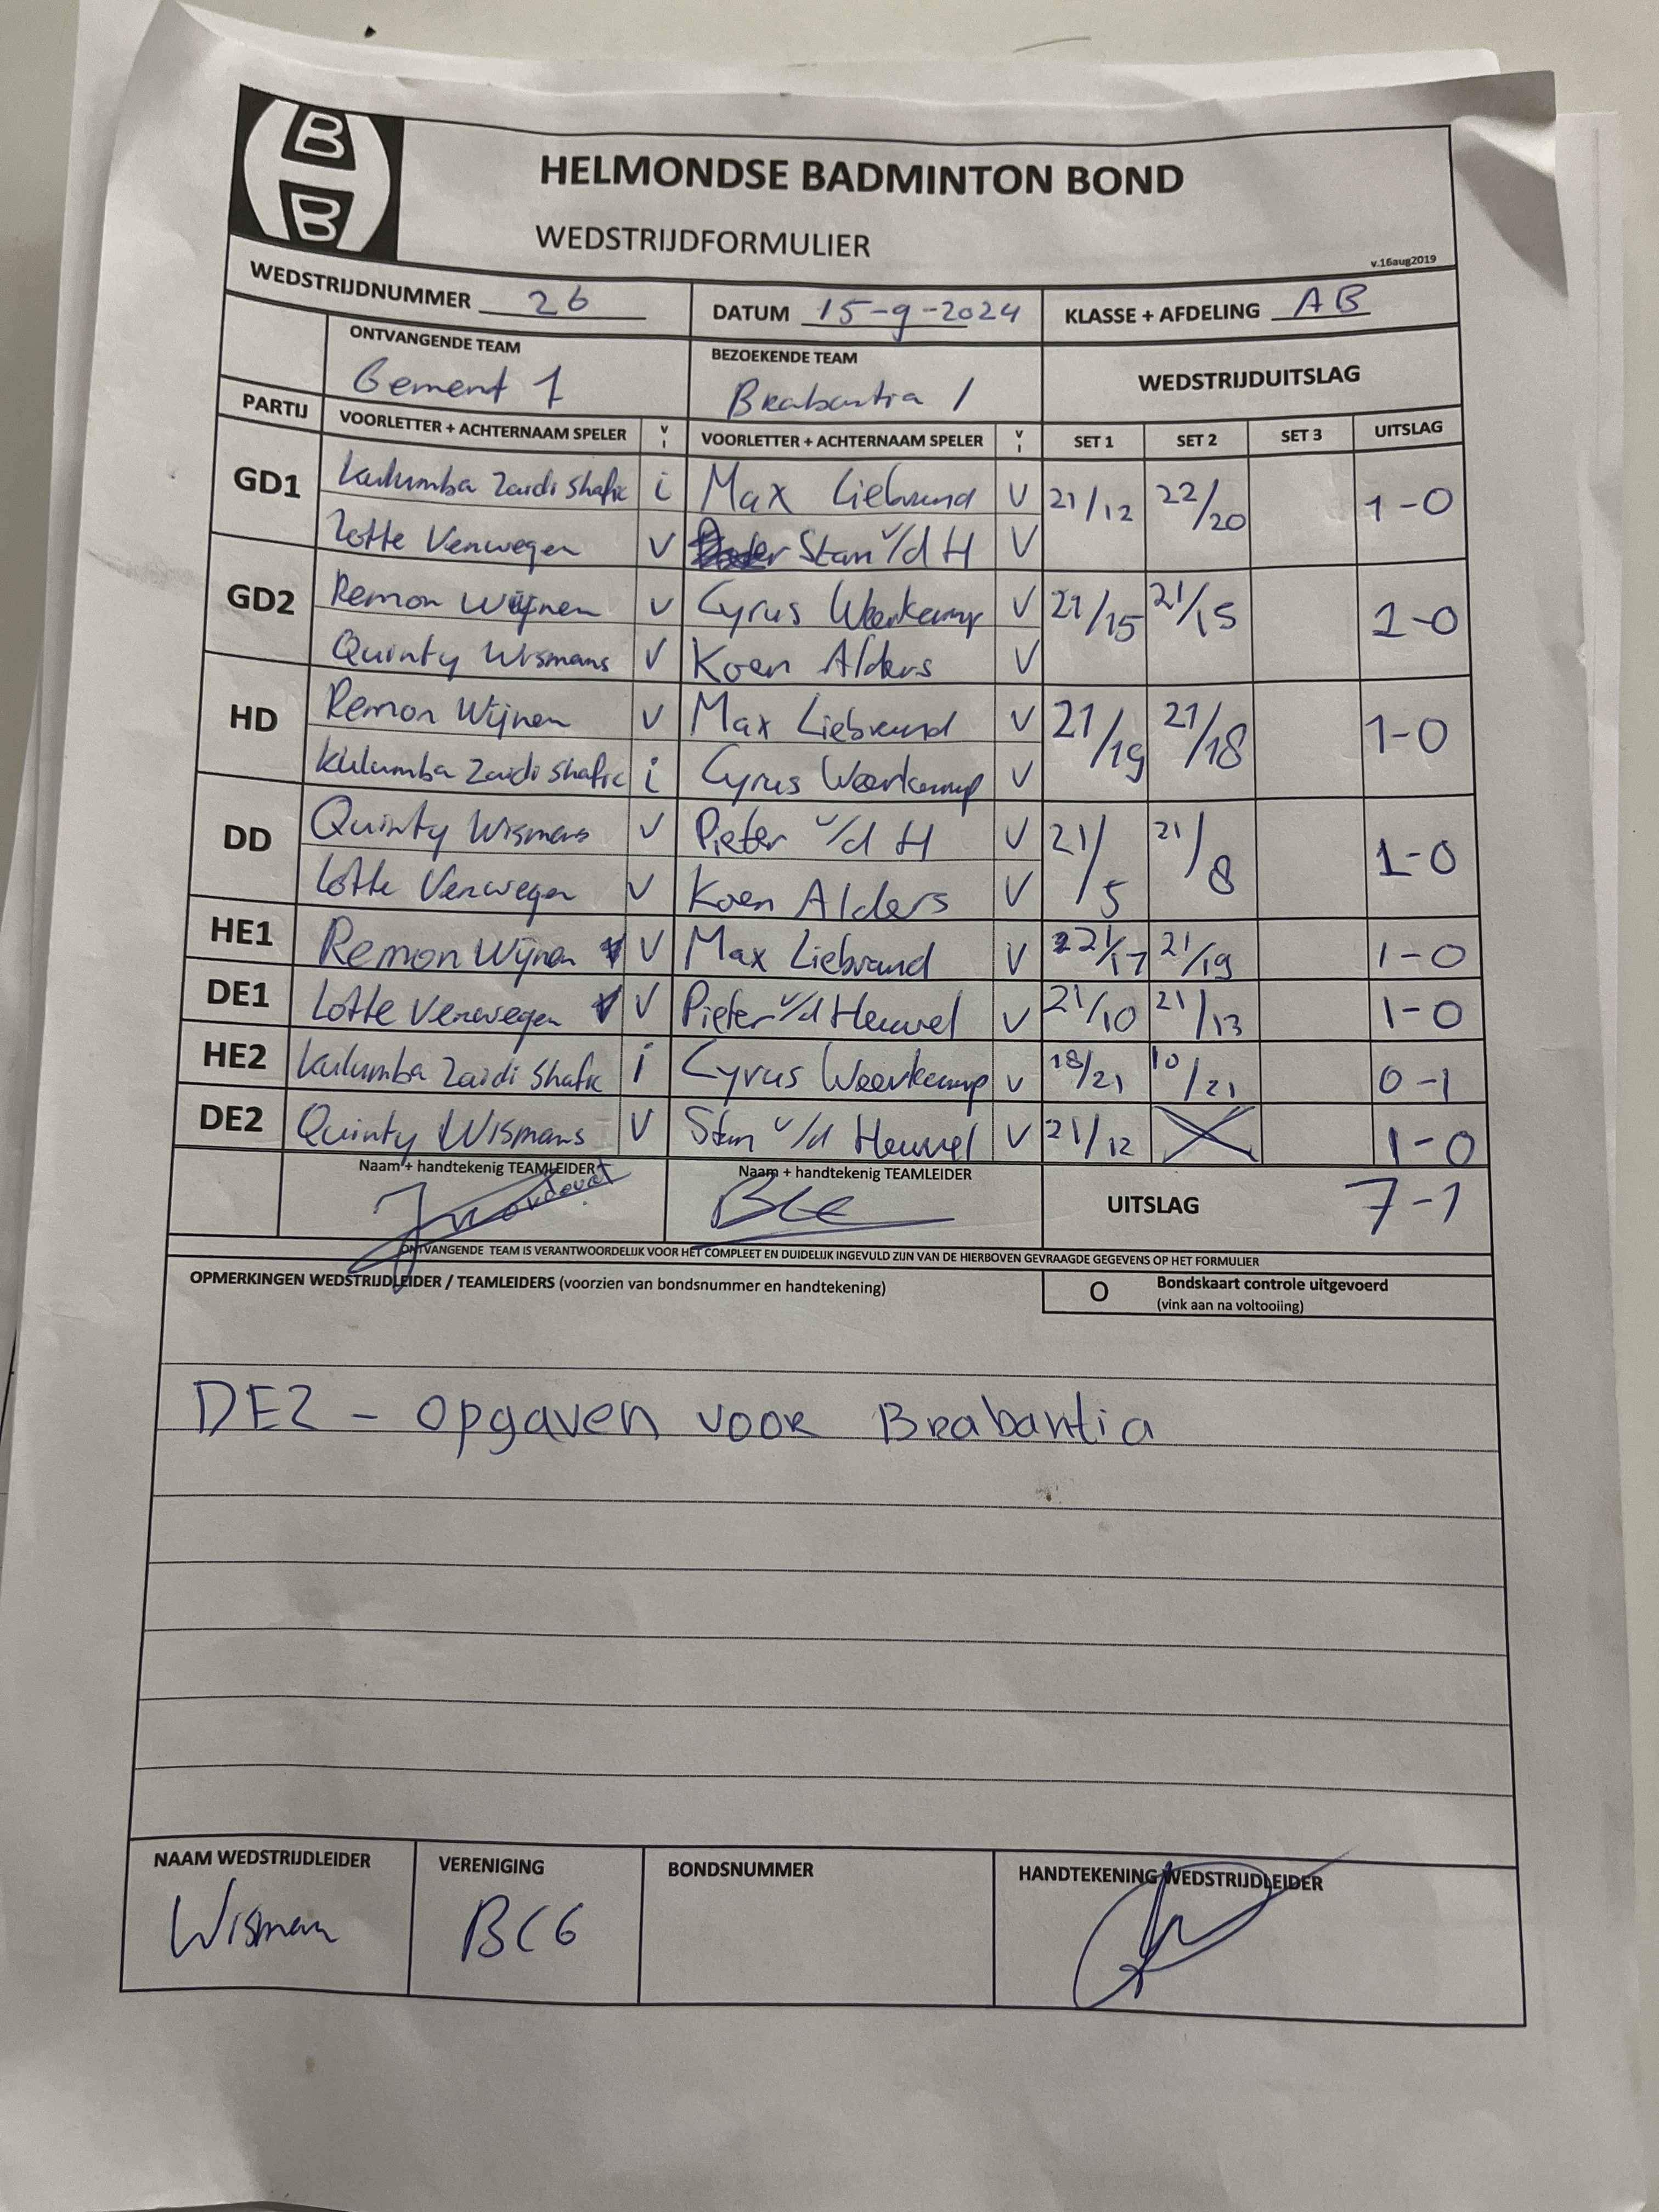 B
B
HELMONDSE BADMINTON BOND
WEDSTRIJDFORMULIER
v.16aug2019
WEDSTRIJDNUMMER 26 DATUM 15-9-2024 KLASSE + AFDELING AB
ONTVANGENDE TEAM BEZOEKENDE TEAM WEDSTRIJDUITSLAG
Gement 1 Brabantia 1
PARTIJ VOORLETTER + ACHTERNAAM SPELER V I VOORLETTER + ACHTERNAAM SPELER V I SET 1 SET 2 SET 3 UITSLAG
GD1 Kulumba Zaidi Shafic i Max Liebrand V 21/12 22/20 1-0
Lotte Verwegen V Stan v/d H V
GD2 Remon Wijnen V Cyrus Weerkamp V 21/15 21/15 1-0
Quinty Wismans V Koen Alders V
HD Remon Wijnen V Max Liebrand V 21/19 21/18 1-0
Kulumba Zaidi Shafic i Cyrus Weerkamp V
DD Quinty Wismans V Pieter v/d H V 21/5 21/8 1-0
Lotte Verwegen V Koen Alders V
HE1 Remon Wijnen V Max Liebrand V 21/17 21/19 1-0
DE1 Lotte Verwegen V Pieter v/d Heuvel V 21/10 21/13 1-0
HE2 Kulumba Zaidi Shafic i Cyrus Weerkamp V 18/21 10/21 0-1
DE2 Quinty Wismans V Stan v/d Heuvel V 21/12 1-0
Naam + handtekenig TEAMLEIDER Naam + handtekenig TEAMLEIDER
UITSLAG 7-1
ONTVANGENDE TEAM IS VERANTWOORDELIJK VOOR HET COMPLEET EN DUIDELIJK INGEVULD ZIJN VAN DE HIERBOVEN GEVRAAGDE GEGEVENS OP HET FORMULIER
OPMERKINGEN WEDSTRIJDLEIDER / TEAMLEIDERS (voorzien van bondsnummer en handtekening) O Bondskaart controle uitgevoerd
(vink aan na voltooiing)
DE2 - opgaven voor Brabantia
NAAM WEDSTRIJDLEIDER VERENIGING BONDSNUMMER HANDTEKENING WEDSTRIJDLEIDER
Wisman BCG